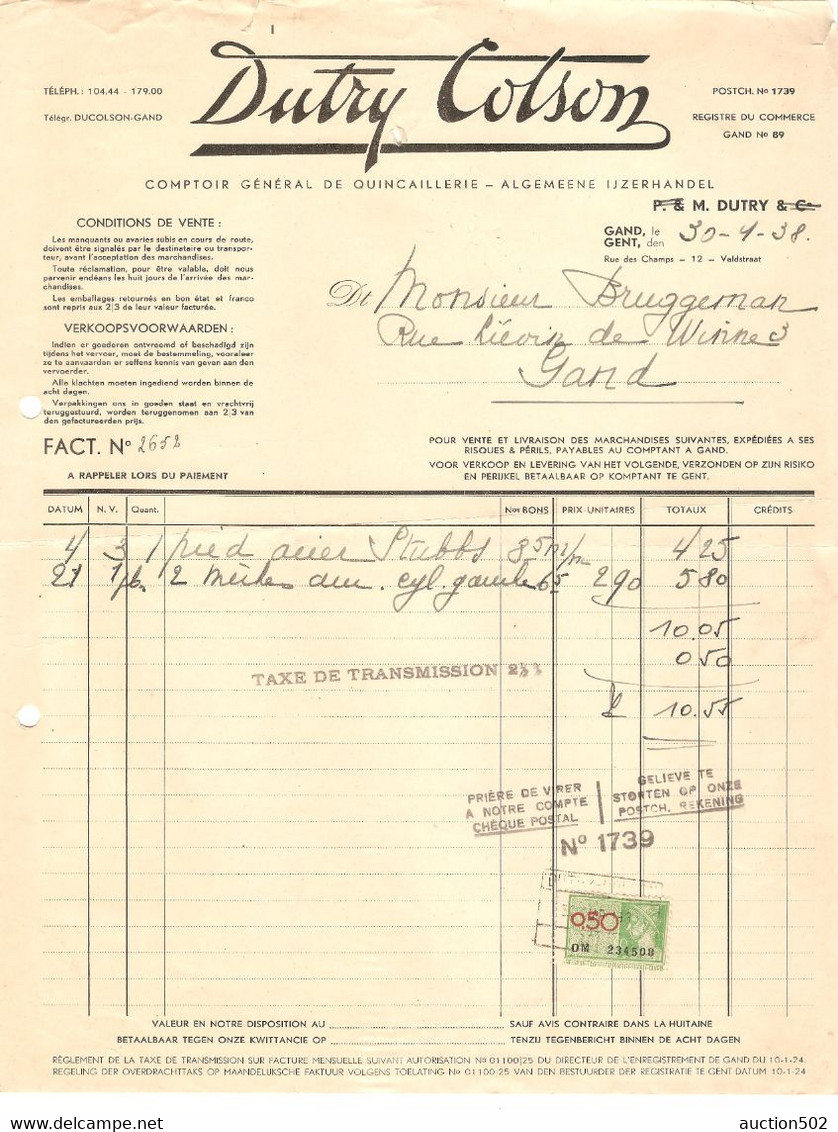 Dutry Colson
TÉLÉPH. : 104.44 - 179.00
Télégr. DUCOLSON-GAND
POSTCH. No 1739
REGISTRE DU COMMERCE
GAND No 89
COMPTOIR GÉNÉRAL DE QUINCAILLERIE – ALGEMEENE IJZERHANDEL
P. & M. DUTRY & Co
GAND, le
GENT, den 30-4-38.
Rue des Champs – 12 – Veldstraat
CONDITIONS DE VENTE :
Les manquants ou avaries subis en cours de route,
doivent être signalés par le destinataire ou transpor-
teur, avant l'acceptation des marchandises.
Toute réclamation, pour être valable, doit nous
parvenir endéans les huit jours de l'arrivée des mar-
chandises.
Les emballages retournés en bon état et franco
sont repris aux 2/3 de leur valeur facturée.
VERKOOPSVOORWAARDEN :
Indien er goederen ontvreemd of beschadigd zijn
tijdens het vervoer, moet de bestemmeling, vooraleer
ze te aanvaarden er seffens kennis van geven aan den
vervoerder.
Alle klachten moeten ingediend worden binnen de
acht dagen.
Verpakkingen ons in goeden staat en vrachtvrij
teruggestuurd, worden teruggenomen aan 2/3 van
den gefactureerden prijs.
Dt Monsieur Bruggeman
Rue Liévin de Winne 3
Gand
FACT. No 2652
A RAPPELER LORS DU PAIEMENT
POUR VENTE ET LIVRAISON DES MARCHANDISES SUIVANTES, EXPÉDIÉES A SES
RISQUES & PÉRILS, PAYABLES AU COMPTANT A GAND.
VOOR VERKOOP EN LEVERING VAN HET VOLGENDE, VERZONDEN OP ZIJN RISIKO
EN PERIJKEL BETAALBAAR OP KOMPTANT TE GENT.
DATUM N. V. Quant. Nos BONS PRIX UNITAIRES TOTAUX CRÉDITS
4 3 1 pied acier Stubbs 35 m/m 4/25
21 2 cyl. 65 290 580
10.05
TAXE DE TRANSMISSION 2½% 050
10.55
PRIÈRE DE VIRER
A NOTRE COMPTE
CHÈQUE POSTAL
GELIEVE TE
STORTEN OP ONZE
POSTCH. REKENING
No 1739
0.50
OM 234508
VALEUR EN NOTRE DISPOSITION AU SAUF AVIS CONTRAIRE DANS LA HUITAINE
BETAALBAAR TEGEN ONZE KWITTANCIE OP TENZIJ TEGENBERICHT BINNEN DE ACHT DAGEN
RÈGLEMENT DE LA TAXE DE TRANSMISSION SUR FACTURE MENSUELLE SUIVANT AUTORISATION No 01100/25 DU DIRECTEUR DE L'ENREGISTREMENT DE GAND DU 10-1-24.
REGELING DER OVERDRACHTTAKS OP MAANDELIJKSCHE FAKTUUR VOLGENS TOELATING No 01100/25 VAN DEN BESTUURDER DER REGISTRATIE TE GENT DATUM 10-1-24
auction502